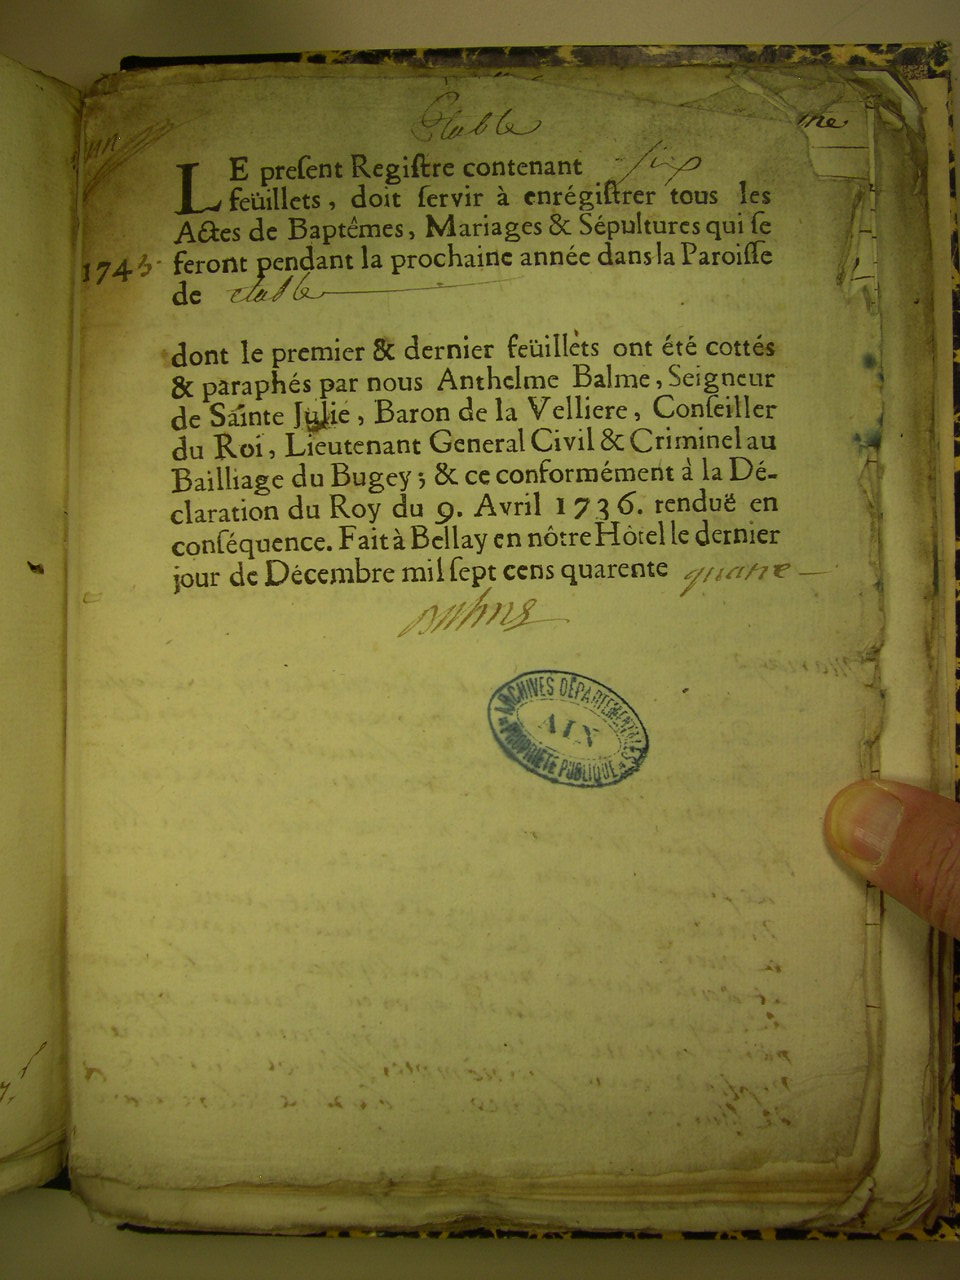 Etable
LE preſent Regiſtre contenant six
feüillets, doit ſervir à enrégiſtrer tous les
Actes de Baptêmes, Mariages & Sépultures qui ſe
1745 feront pendant la prochaine année dans la Paroiſſe
de etable
dont le premier & dernier feüillets ont été cottés
& paraphés par nous Anthelme Balme, Seigneur
de Sainte Julie, Baron de la Velliere, Conſeiller
du Roi, Lieutenant General Civil & Criminel au
Bailliage du Bugey; & ce conformément à la Dé-
claration du Roy du 9. Avril 1736. renduë en
conſéquence. Fait à Bellay en nôtre Hôtel le dernier
jour de Décembre mil ſept cens quarente quatre
ARCHIVES DÉPARTEMENTALES
AIN
PROPRIÉTÉ PUBLIQUE